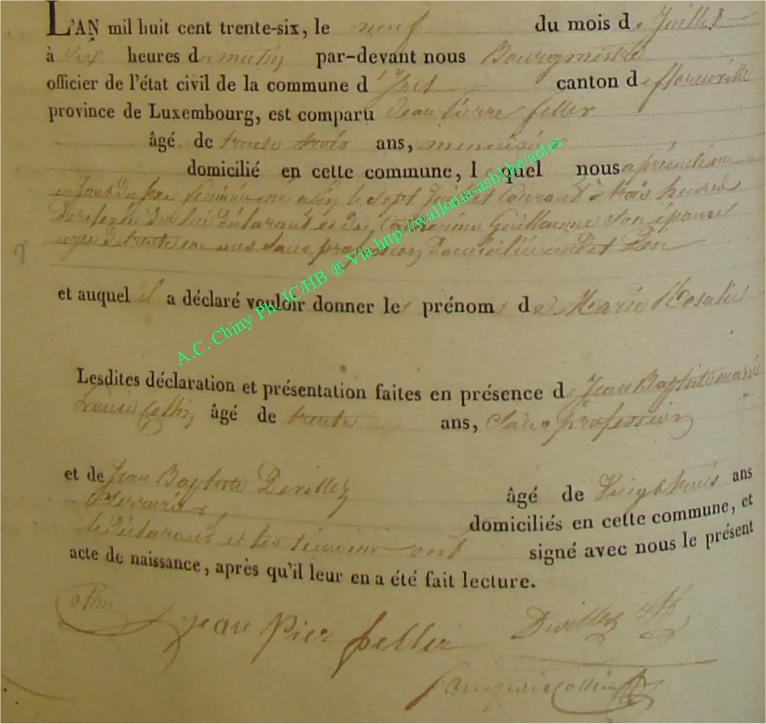 L'AN mil huit cent trente-six, le neuf du mois de Juillet
à dix heures du matin par-devant nous Bourgmestre
officier de l'état civil de la commune d'Izel canton de florenville
province de Luxembourg, est comparu Jean Pierre feller
âgé de trente trois ans, menuisier
domicilié en cette commune, lequel nous a présenté un
enfant du sexe féminin né à Izel le sept Juillet courant à trois heures
de lui déclarant et de Catherine Guillaume son épouse
agée de trente un ans sans profession domiciliée audit lieu
et auquel il a déclaré vouloir donner les prénoms de Marie Rosalie
Lesdites déclaration et présentation faites en présence de Jean Baptiste marie
Louis Collin âgé de trente ans, sans profession
et de Jean Baptiste Devillez âgé de vingt trois ans
domiciliés en cette commune, et
le déclarant et les témoins ont signé avec nous le présent
acte de naissance, après qu'il leur en a été fait lecture.
Jean Pier feller Devillez
Collin
A.C. Chiny Ph. JC/HB ® Via http://wallonia-asbl.be/actes